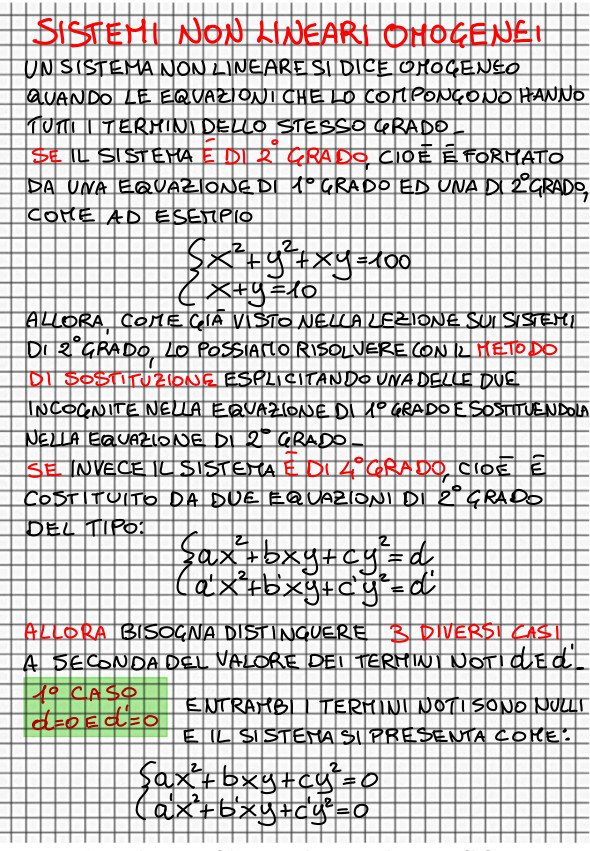 SISTEMI NON LINEARI OMOGENEI
UN SISTEMA NON LINEARE SI DICE OMOGENEO
QUANDO LE EQUAZIONI CHE LO COMPONGONO HANNO
TUTTI I TERMINI DELLO STESSO GRADO_
SE IL SISTEMA È DI 2° GRADO, CIOÈ È FORMATO
DA UNA EQUAZIONE DI 1° GRADO ED UNA DI 2° GRADO,
COME AD ESEMPIO
{x²+y²+xy=100
x+y=10
ALLORA, COME GIÀ VISTO NELLA LEZIONE SUI SISTEMI
DI 2° GRADO, LO POSSIAMO RISOLVERE CON IL METODO
DI SOSTITUZIONE ESPLICITANDO UNA DELLE DUE
INCOGNITE NELLA EQUAZIONE DI 1° GRADO E SOSTITUENDOLA
NELLA EQUAZIONE DI 2° GRADO_
SE INVECE IL SISTEMA È DI 4° GRADO, CIOÈ È
COSTITUITO DA DUE EQUAZIONI DI 2° GRADO
DEL TIPO:
{ax²+bxy+cy²=d
a'x²+b'xy+c'y²=d'
ALLORA BISOGNA DISTINGUERE 3 DIVERSI CASI
A SECONDA DEL VALORE DEI TERMINI NOTI d E d'_
1° CASO
d=0 E d'=0
ENTRAMBI I TERMINI NOTI SONO NULLI
E IL SISTEMA SI PRESENTA COME:
{ax²+bxy+cy²=0
a'x²+b'xy+c'y²=0